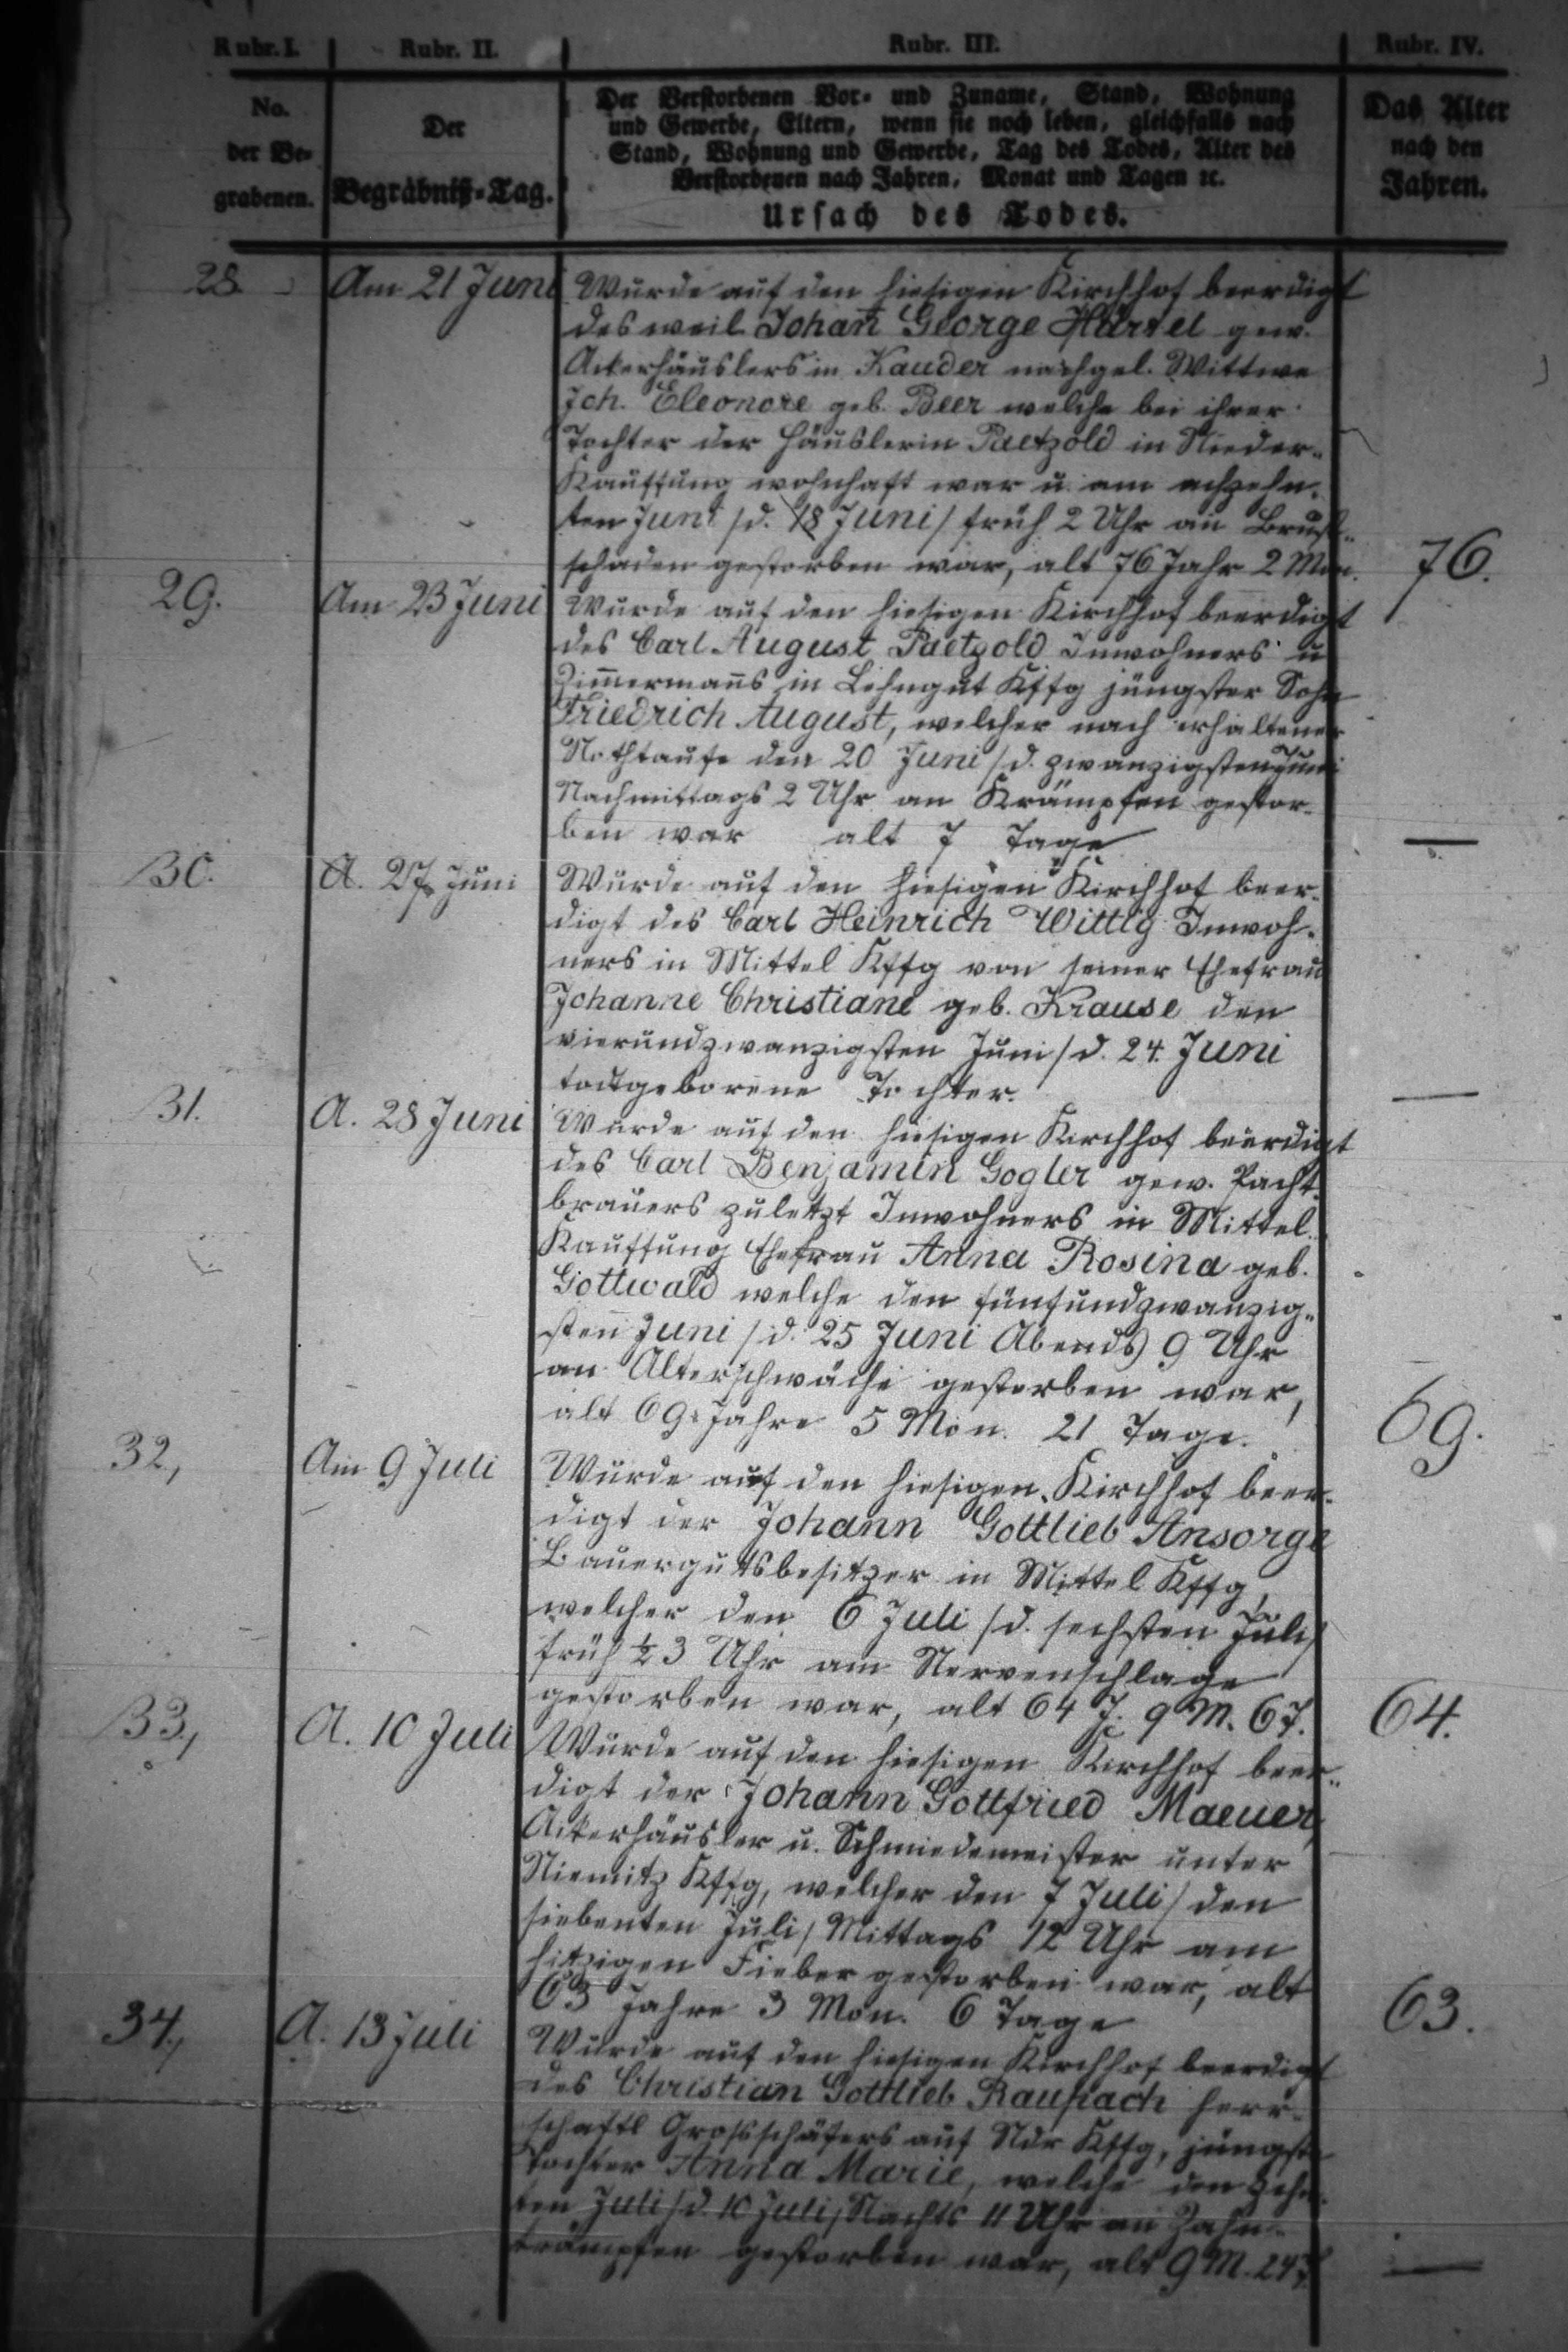 Rubr. I. Rubr. II. Rubr. III. Rubr. IV.
No. der Be- grabenen.
Der Begräbniß-Tag.
Der Verstorbenen Vor- und Zuname, Stand, Wohnung
und Gewerbe, Eltern, wenn sie noch leben, gleichfalls nach
Stand, Wohnung und Gewerbe, Tag des Todes, Alter des
Verstorbenen nach Jahren, Monat und Tagen ꝛc.
Ursach des Todes.
Das Alter
nach den
Jahren.
28. Am 21 Juni Wurde auf den hiesigen Kirchhof beerdigt
des weil Johañ George Härtel gew.
Ackerhäuslers in Kauder nachgel. Wittwe
Joh. Eleonore geb. Beer welche bei ihrer
Tochter der Häuslerin Paetzold in Nieder-
Kauffung wohnhaft war u. am achzehn-
ten Juni /d. 18 Juni/ früh 2 Uhr an Brust-
schaden gestorben war, alt 76 Jahr 2 Mon. 76.
29. Am 23 Juni Wurde auf den hiesigen Kirchhof beerdigt
des Carl August Paetzold Inwohners u
Zim̄ermañs in Lehngut Kffg jüngster Sohn
Friedrich August, welcher nach erhaltener
Nothtaufe den 20 Juni /d. zwanzigsten Juni
Nachmittags 2 Uhr an Krämpfen gestor-
ben war alt 7 Tage —
30. A. 27 Juni Wurde auf den hiesigen Kirchhof beer-
digt des Carl Heinrich Wittig Inwoh-
ners in Mittel Kffg von seiner Ehefrau
Johanne Christiane geb. Krause den
vierundzwanzigsten Juni /d. 24. Juni
todtgeborene Tochter. —
31. A. 28 Juni Wurde auf den hiesigen Kirchhof beerdigt
des Carl Benjamin Gogler gew. Pacht-
brauers zuletzt Inwohners in Mittel-
Kauffung Ehefrau Anna Rosina geb.
Gottwald welche den fünfundzwanzig-
sten Juni /d. 25 Juni Abends 9 Uhr
an Alterschwäche gestorben war,
alt 69 Jahre 5 Mon. 21 Tage. 69.
32, Am 9 Juli Wurde auf den hiesigen Kirchhof beer-
digt der Johann Gottlieb Ansorge
Bauergutsbesitzer in Mittel Kffg,
welcher den 6 Juli /d. sechsten Juli/
früh ½ 3 Uhr am Nervenschlage
gestorben war, alt 64 J. 9 M. 6 T. 64.
33, A. 10 Juli Wurde auf den hiesigen Kirchhof beer-
digt der Johann Gottfried Maeuer,
Ackerhäusler u. Schmiedemeister unter
Niemitz Kffg, welcher den 7 Juli / den
siebenten Juli / Mittags 12 Uhr am
hitzigen Fieber gestorben war, alt
63 Jahre 3 Mon. 6 Tage 63.
34, A. 13 Juli Wurde auf den hiesigen Kirchhof beerdigt
des Christian Gottlieb Raupach herr-
schaftl Grosschäfers auf Ndr Kffg, jüngste
Tochter Anna Marie, welche den zehn-
ten Juli /d. 10 Juli/ Nachts 11 Uhr an Zahn-
krämpfen gestorben war, alt 9 M. 24 T. —